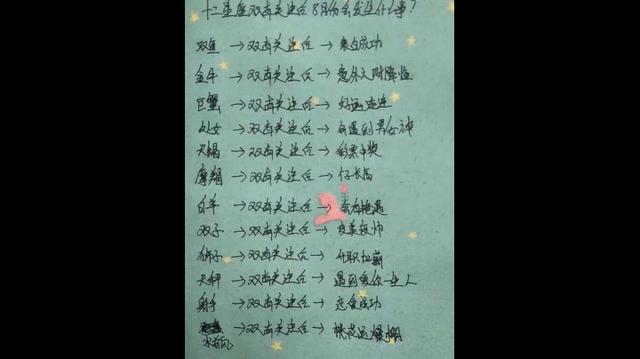 十二星座双击关注后8月份会发生什么事?
双鱼→双击关注后→表白成功
金牛→双击关注后→意外之财降临
巨蟹→双击关注后→好运连连
处女→双击关注后→会遇到男女神
天蝎→双击关注后→彩票中奖
摩羯→双击关注后→仔长高
白羊→双击关注后→会有艳遇
双子→双击关注后→变美变帅
狮子→双击关注后→升职加薪
天秤→双击关注后→遇到爱你一生人
射手→双击关注后→恋爱成功
水瓶→双击关注后→桃花运爆棚